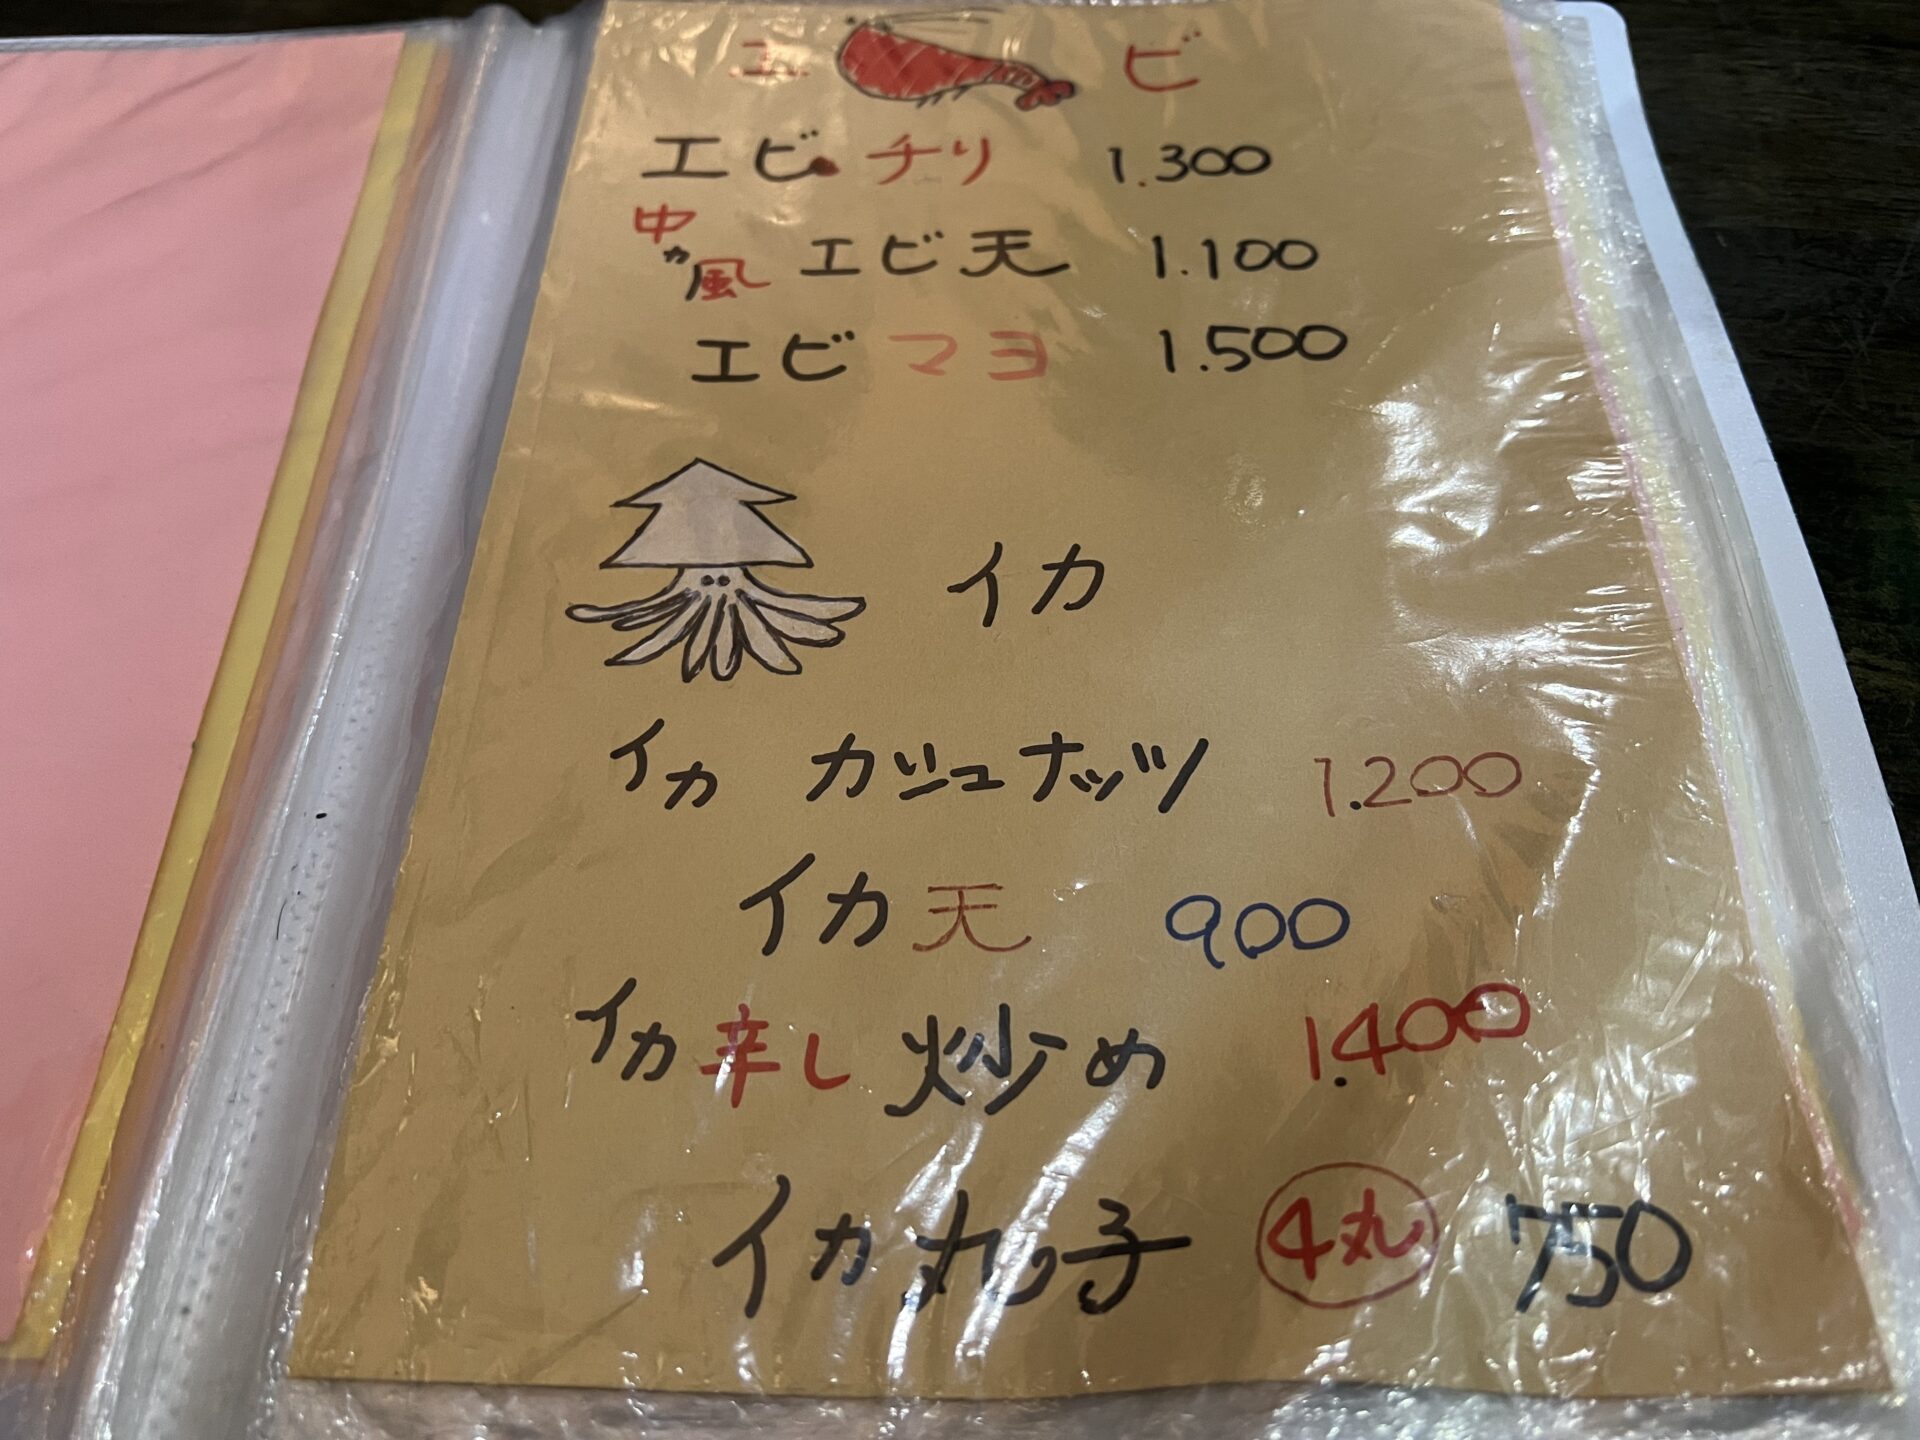 エビ
エビチリ 1.300
中カ風 エビ天 1.100
エビマヨ 1.500
イカ
イカ カシューナッツ 1.200
イカ天 900
イカ辛し炒め 1.400
イカ丸子 4丸 750